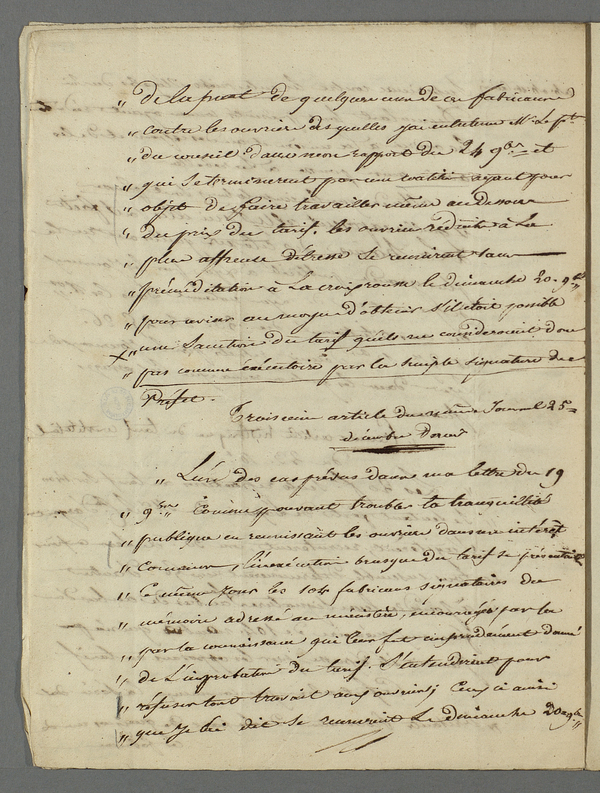 „ De la part de quelques uns de ces fabricants
„ contre les ouvriers desquelles j'ai entretenu Mr. Le Pt.
„ du conseil dans mon rapport du 24 9bre et
„ qui se terminèrent par une coalition ayant pour
„ objet de faire travailler même au dessous
„ du prix du tarif. les ouvriers réduits à La
„ plus affreuse détresse se reunirent sans
„ préméditation à La croixrousse le dimanche 20. 9bre
„ pour aviser au moyen d'obtenir s'il étoit possible
„ une Sanction du tarif qu'ils ne consideroient donc
„ pas comme exécutoire par la simple signature du
Préfet.
Troisième article du même Journal 25
décembre Dernier
„ L'un des cas prévus dans ma lettre du 19
„ 9bre comme pouvant troubler la tranquillité
„ publique en reunissant les ouvriers dans un intérêt
„ Commun, l'inexécution brusque du tarif se présentait
„ Le même jour les 104 fabricans signataires du
„ mémoire adressé au ministère, encouragés par la
„ par la connoissance qui leur fut imprudément donné
„ de L'improbation du tarif. S'entendirent pour
„ refuser tout travail aux ouvriers; Ceux ci ainsi
„ que je l'ai dit se reunirent Le dimanche 20 9bre